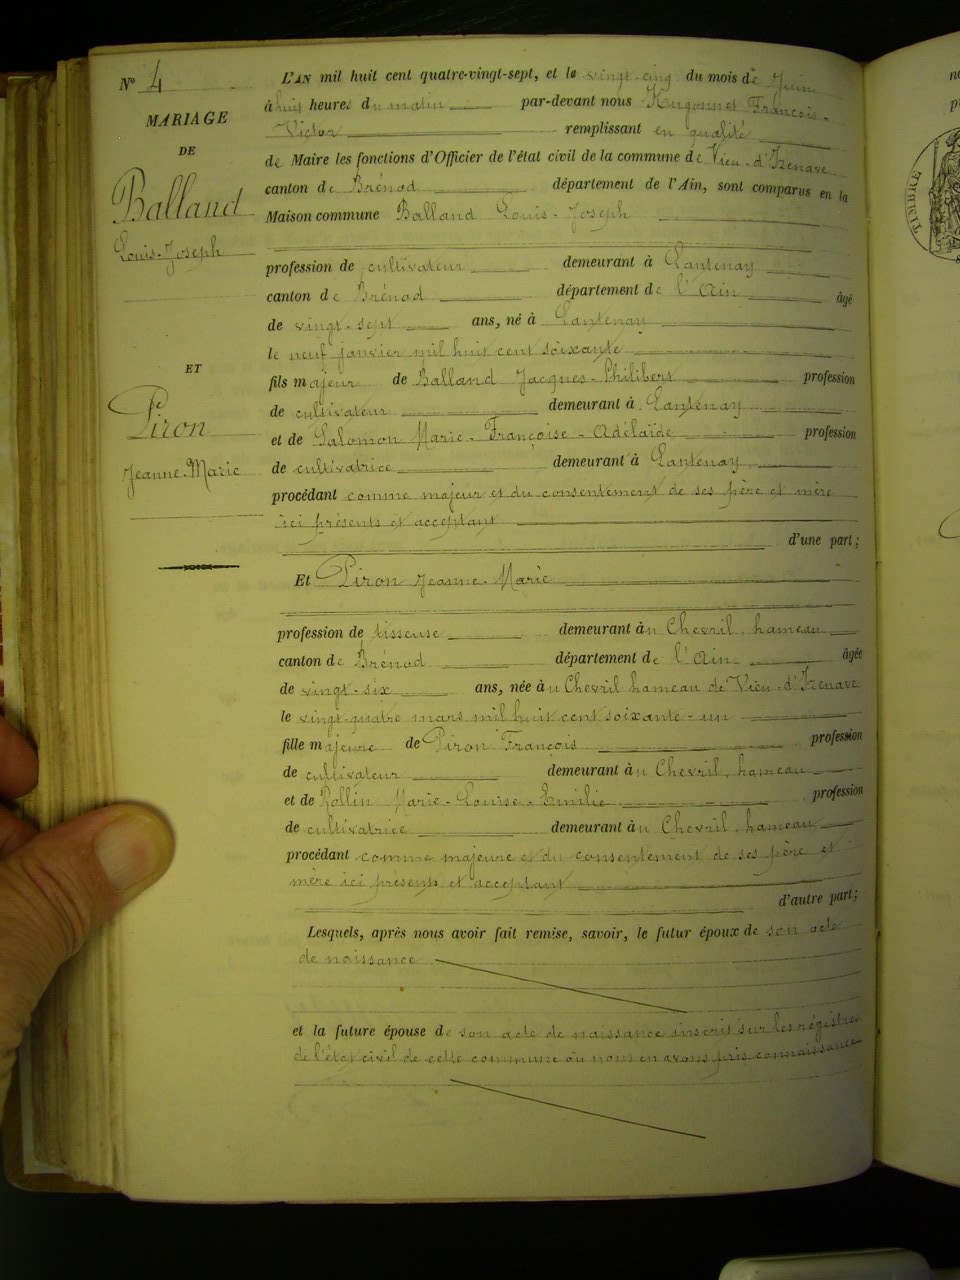 N° 4
MARIAGE
DE
Balland
Louis-Joseph
ET
Piron
Jeanne-Marie
L'AN mil huit cent quatre-vingt-sept, et le vingt-cinq du mois de Juin
à huit heures du matin par-devant nous Hugonnet François-
Victor remplissant en qualité
de Maire les fonctions d'Officier de l'état civil de la commune de Vieu-d'Izenave
canton de Brénod département de l'Ain, sont comparus en la
Maison commune Balland Louis-Joseph
profession de cultivateur demeurant à Lantenay
canton de Brénod département de l'Ain âgé
de vingt-sept ans, né à Lantenay
le neuf janvier mil huit cent soixante
fils majeur de Balland Jacques-Philibert profession
de cultivateur demeurant à Lantenay
et de Salomon Marie-Françoise-Adélaïde profession
de cultivatrice demeurant à Lantenay
procédant comme majeur et du consentement de ses père et mère
ici présents et acceptant
d'une part;
Et Piron Jeanne-Marie
profession de tisseuse demeurant àu Chevril, hameau
canton de Brénod département de l'Ain âgée
de vingt-six ans, née àu Chevril hameau de Vieu-d'Izenave
le vingt-quatre mars mil huit cent soixante-un
fille majeure de Piron François profession
de cultivateur demeurant àu Chevril, hameau
et de Rollin Marie-Louise-Emilie profession
de cultivatrice demeurant àu Chevril, hameau
procédant comme majeure et du consentement de ses père et
mère ici présents et acceptant
d'autre part;
Lesquels, après nous avoir fait remise, savoir, le futur époux de son acte
de naissance
et la future épouse de son acte de naissance inscrit sur les régistres
de l'état civil de cette commune où nous en avons pris connaissance
TIMBRE